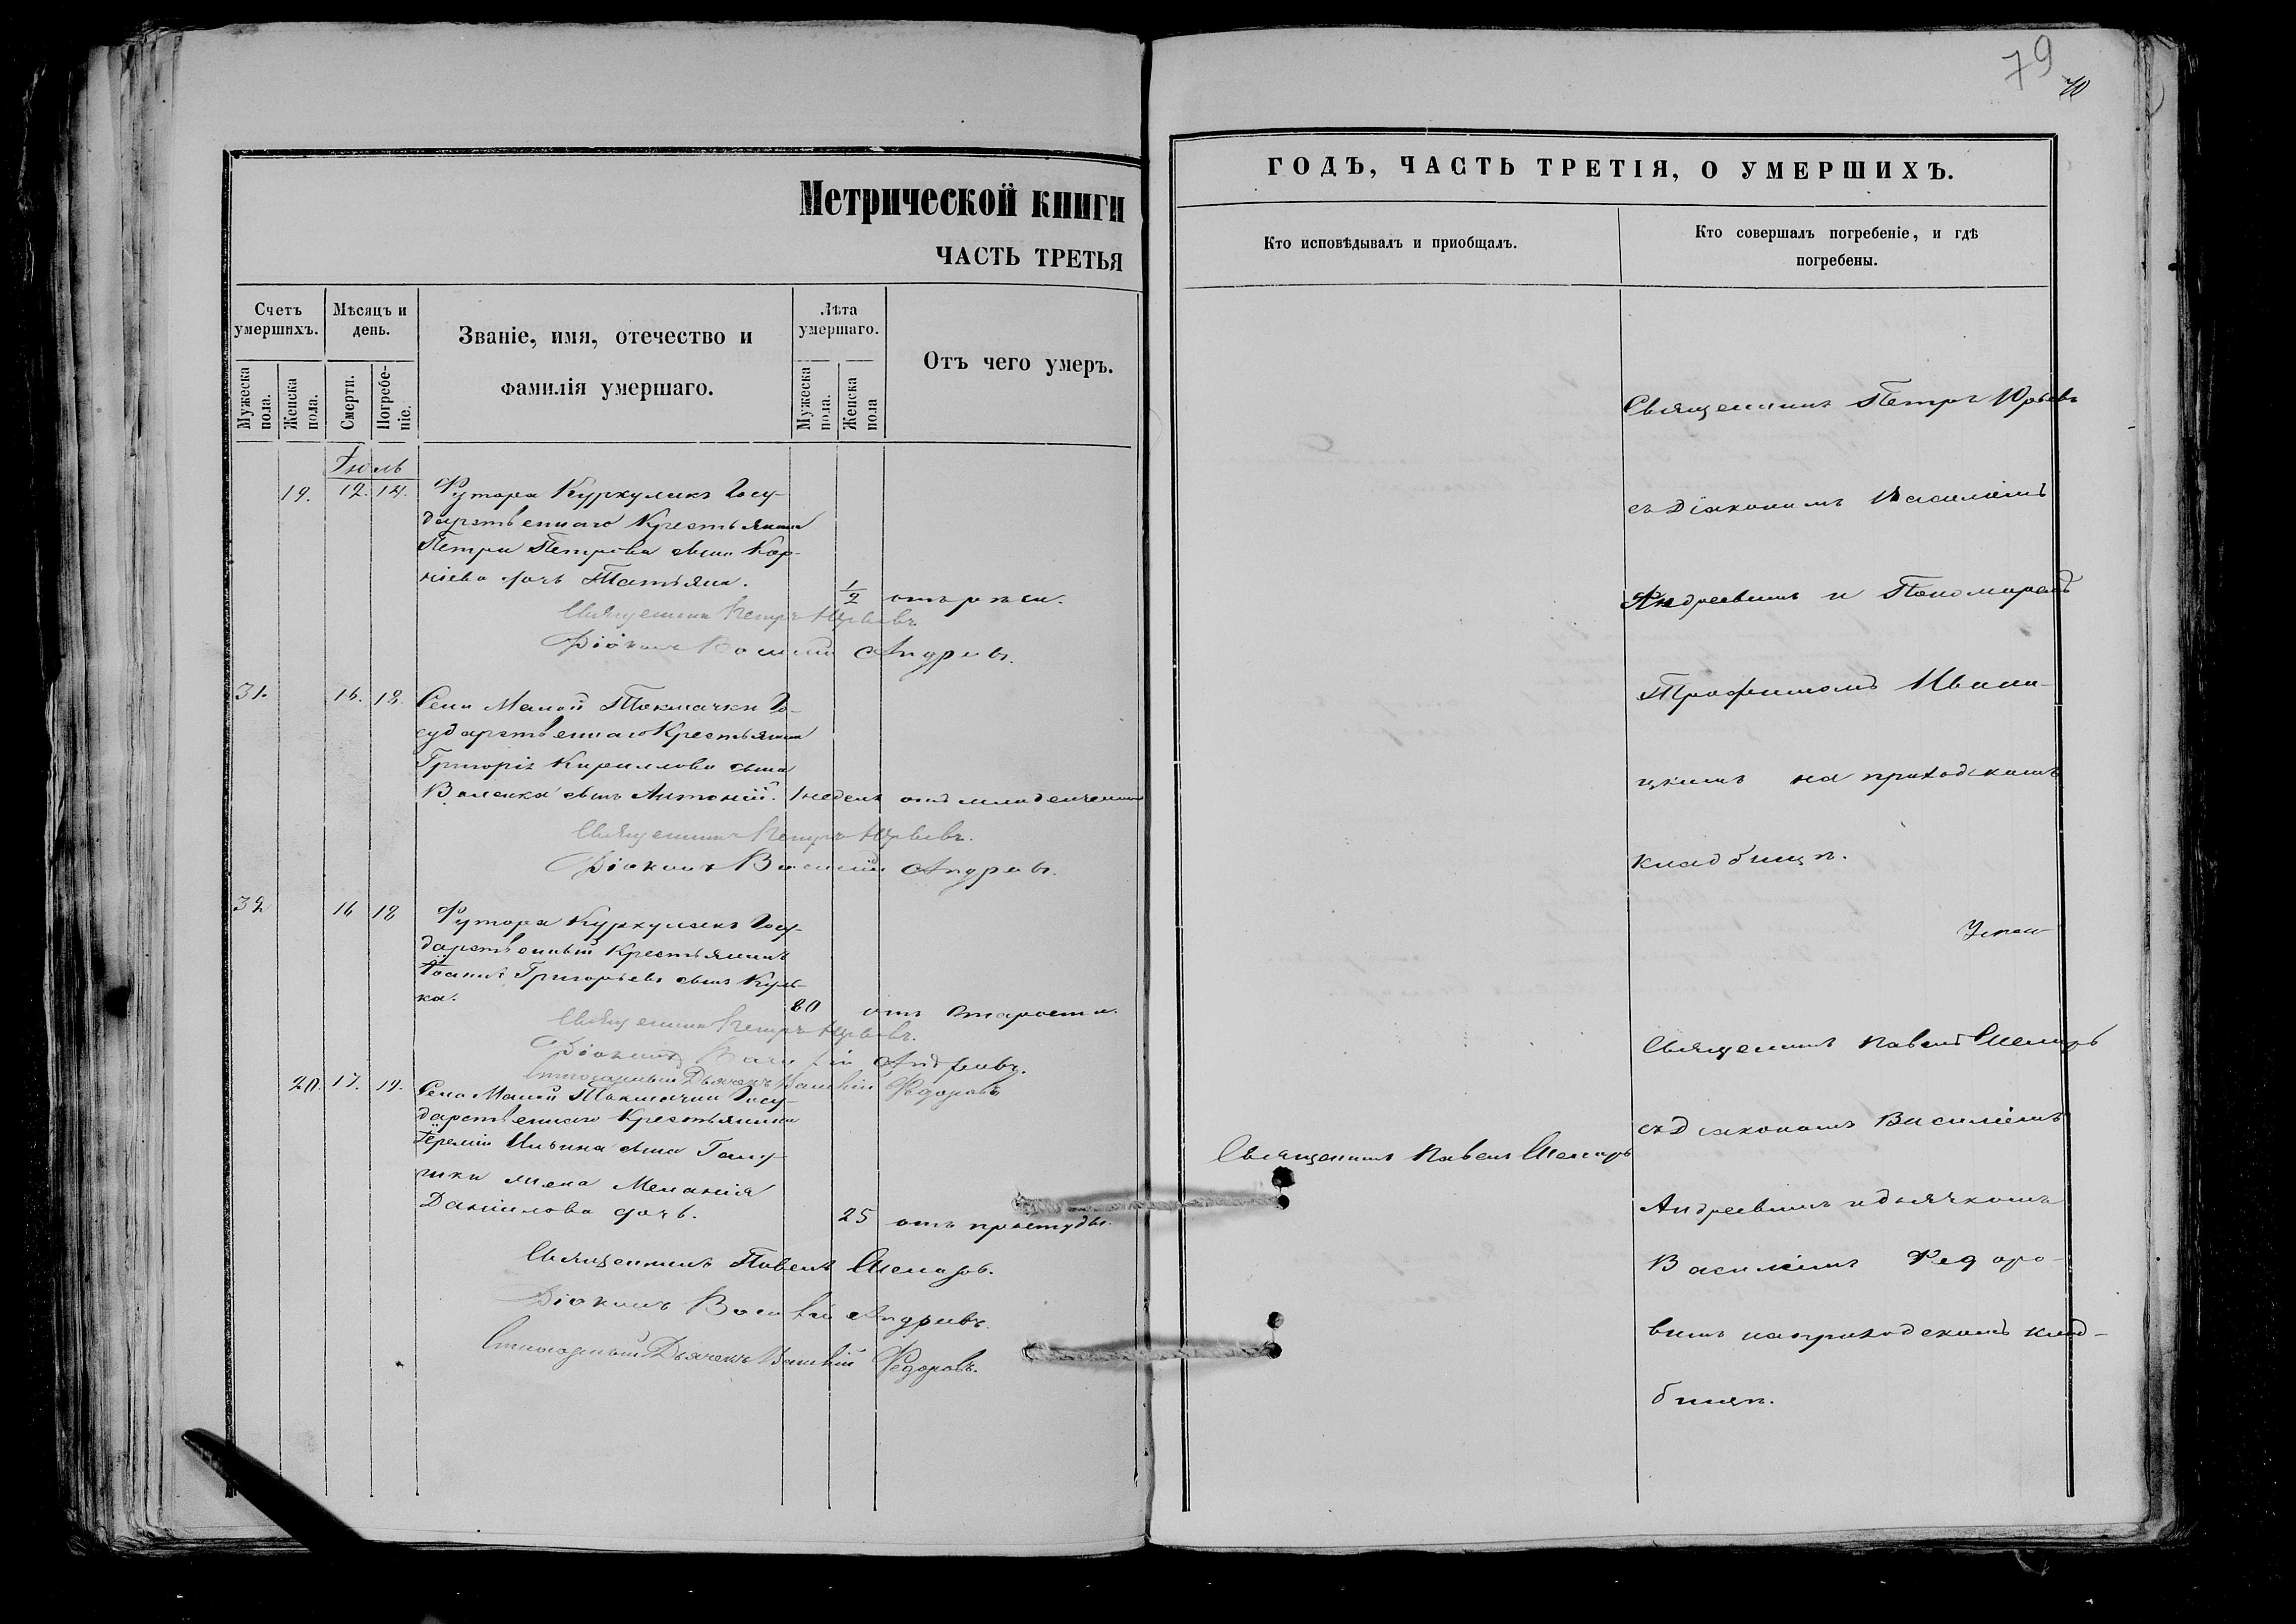 79
70
Метрической книги
ЧАСТЬ ТРЕТЬЯ
Счетъ умершихъ.
Мужеска пола.
Женска пола.
Мѣсяцъ и день.
Смерти.
Погребеніе.
Званіе, имя, отечество и
фамилія умершаго.
Лѣта умершаго.
Мужеска пола.
Женска пола
Отъ чего умеръ.
Іюль
19. 12. 14. Футора Куркулакъ Госу-
дарственнаго Крестьянина
Петра Петрова сына Кор-
ніева дочь Татьяна.
1/2 отъ рези.
Священникъ Петръ Юрьевъ
Діаконъ Василій Андреевъ.
31. 16. 18. Села Малой Токмачки Го-
сударственнаго Крестьянина
Григорія Кириллова сына
сынъ Антоній. 1 недели отъ младенческой
Священникъ Петръ Юрьевъ.
Діаконъ Василій Андреевъ.
32 16 18 Футора Куркулакъ Госу-
дарственный Крестьянинъ
Іоаннъ Григорьевъ сынъ Куль-
ка.
80 отъ старости.
Священникъ Петръ Юрьевъ.
Діаконъ Василій Андреевъ.
Дьячекъ Василій Федоровъ
20. 17. 19. Села Малой Токмачки Госу-
дарственнаго Крестьянина
Іереміи Ильина сына Галу-
шки жена Меланія
Даніилова дочь.
25 отъ простуды.
Священникъ Павелъ
Діаконъ Василій Андреевъ.
Дьячекъ Василій Федоровъ.
ГОДЪ, ЧАСТЬ ТРЕТІЯ, О УМЕРШИХЪ.
Кто исповѣдывалъ и приобщалъ.
Кто совершалъ погребеніе, и гдѣ
погребены.
Священникъ Петръ Юрьевъ
съ Діакономъ Василіемъ
Андреевымъ и Пономаремъ
Трофимомъ Ивани-
цкимъ на приходскомъ
кладбищѣ.
Священникъ Павелъ
Священникъ Павелъ
съ Діакономъ Василіемъ
Андреевымъ и дьячкомъ
Василіемъ Федоро-
вымъ на приходскомъ клад-
бищѣ.